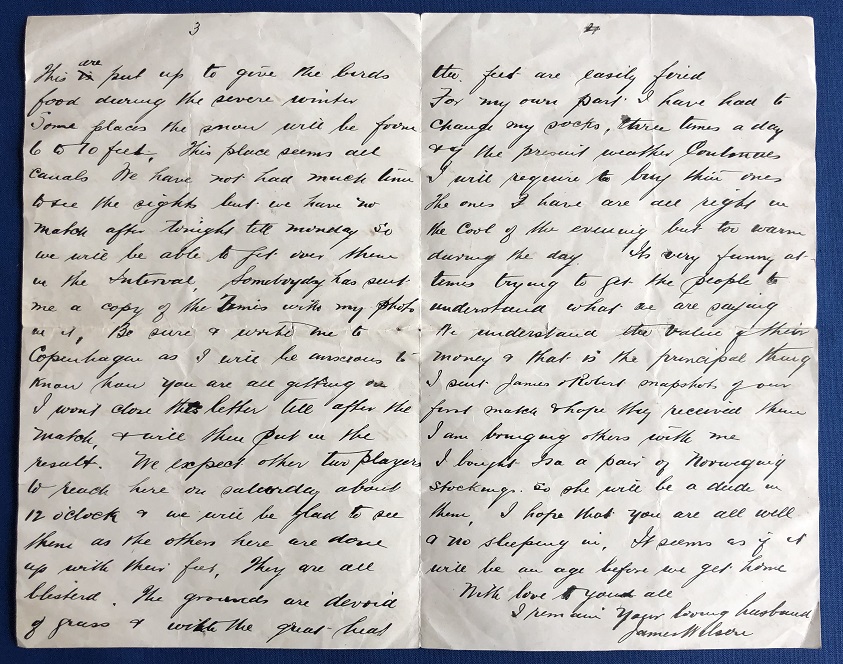 3
This is are put up to give the birds
food during the severe winter
Some places the snow will be from
6 to 10 feet. This place seems all
canals We have not had much time
to see the sights but we have no
match after tonight till monday So
we will be able to get over them
in the Interval, Somebody has sent
me a copy of the Times with my photo
in it, Be sure & write me to
Copenhagen as I will be anxious to
know how you are all getting on
I wont close the letter till after the
match, & will then put in the
result. We expect other two players
to reach here on saturday about
12 oclock & we will be glad to see
them as the others here are done
up with their feet, They are all
blisterd. The grounds are devoid
of grass & with the great heat
4
the feet are easily fired
For my own part I have had to
change my socks, three times a day
& if the present weather Continues
I will require to buy thin ones
the ones I have are all right in
the cool of the evening but too warm
during the day. Its very funny at
times trying to get the people to
understand what we are saying
We understand the value of their
money & that is the principal thing
I sent James & Robert snapshots of our
first match & hope they received them
I am bringing others with me
I bought Isa a pair of Norweging
stockings. so she will be a dude in
them, I hope that you are all well
& no sleeping in, It seems as if it
will be an age before we get home
With love to you all
I remain Your loving husband
James Wilson